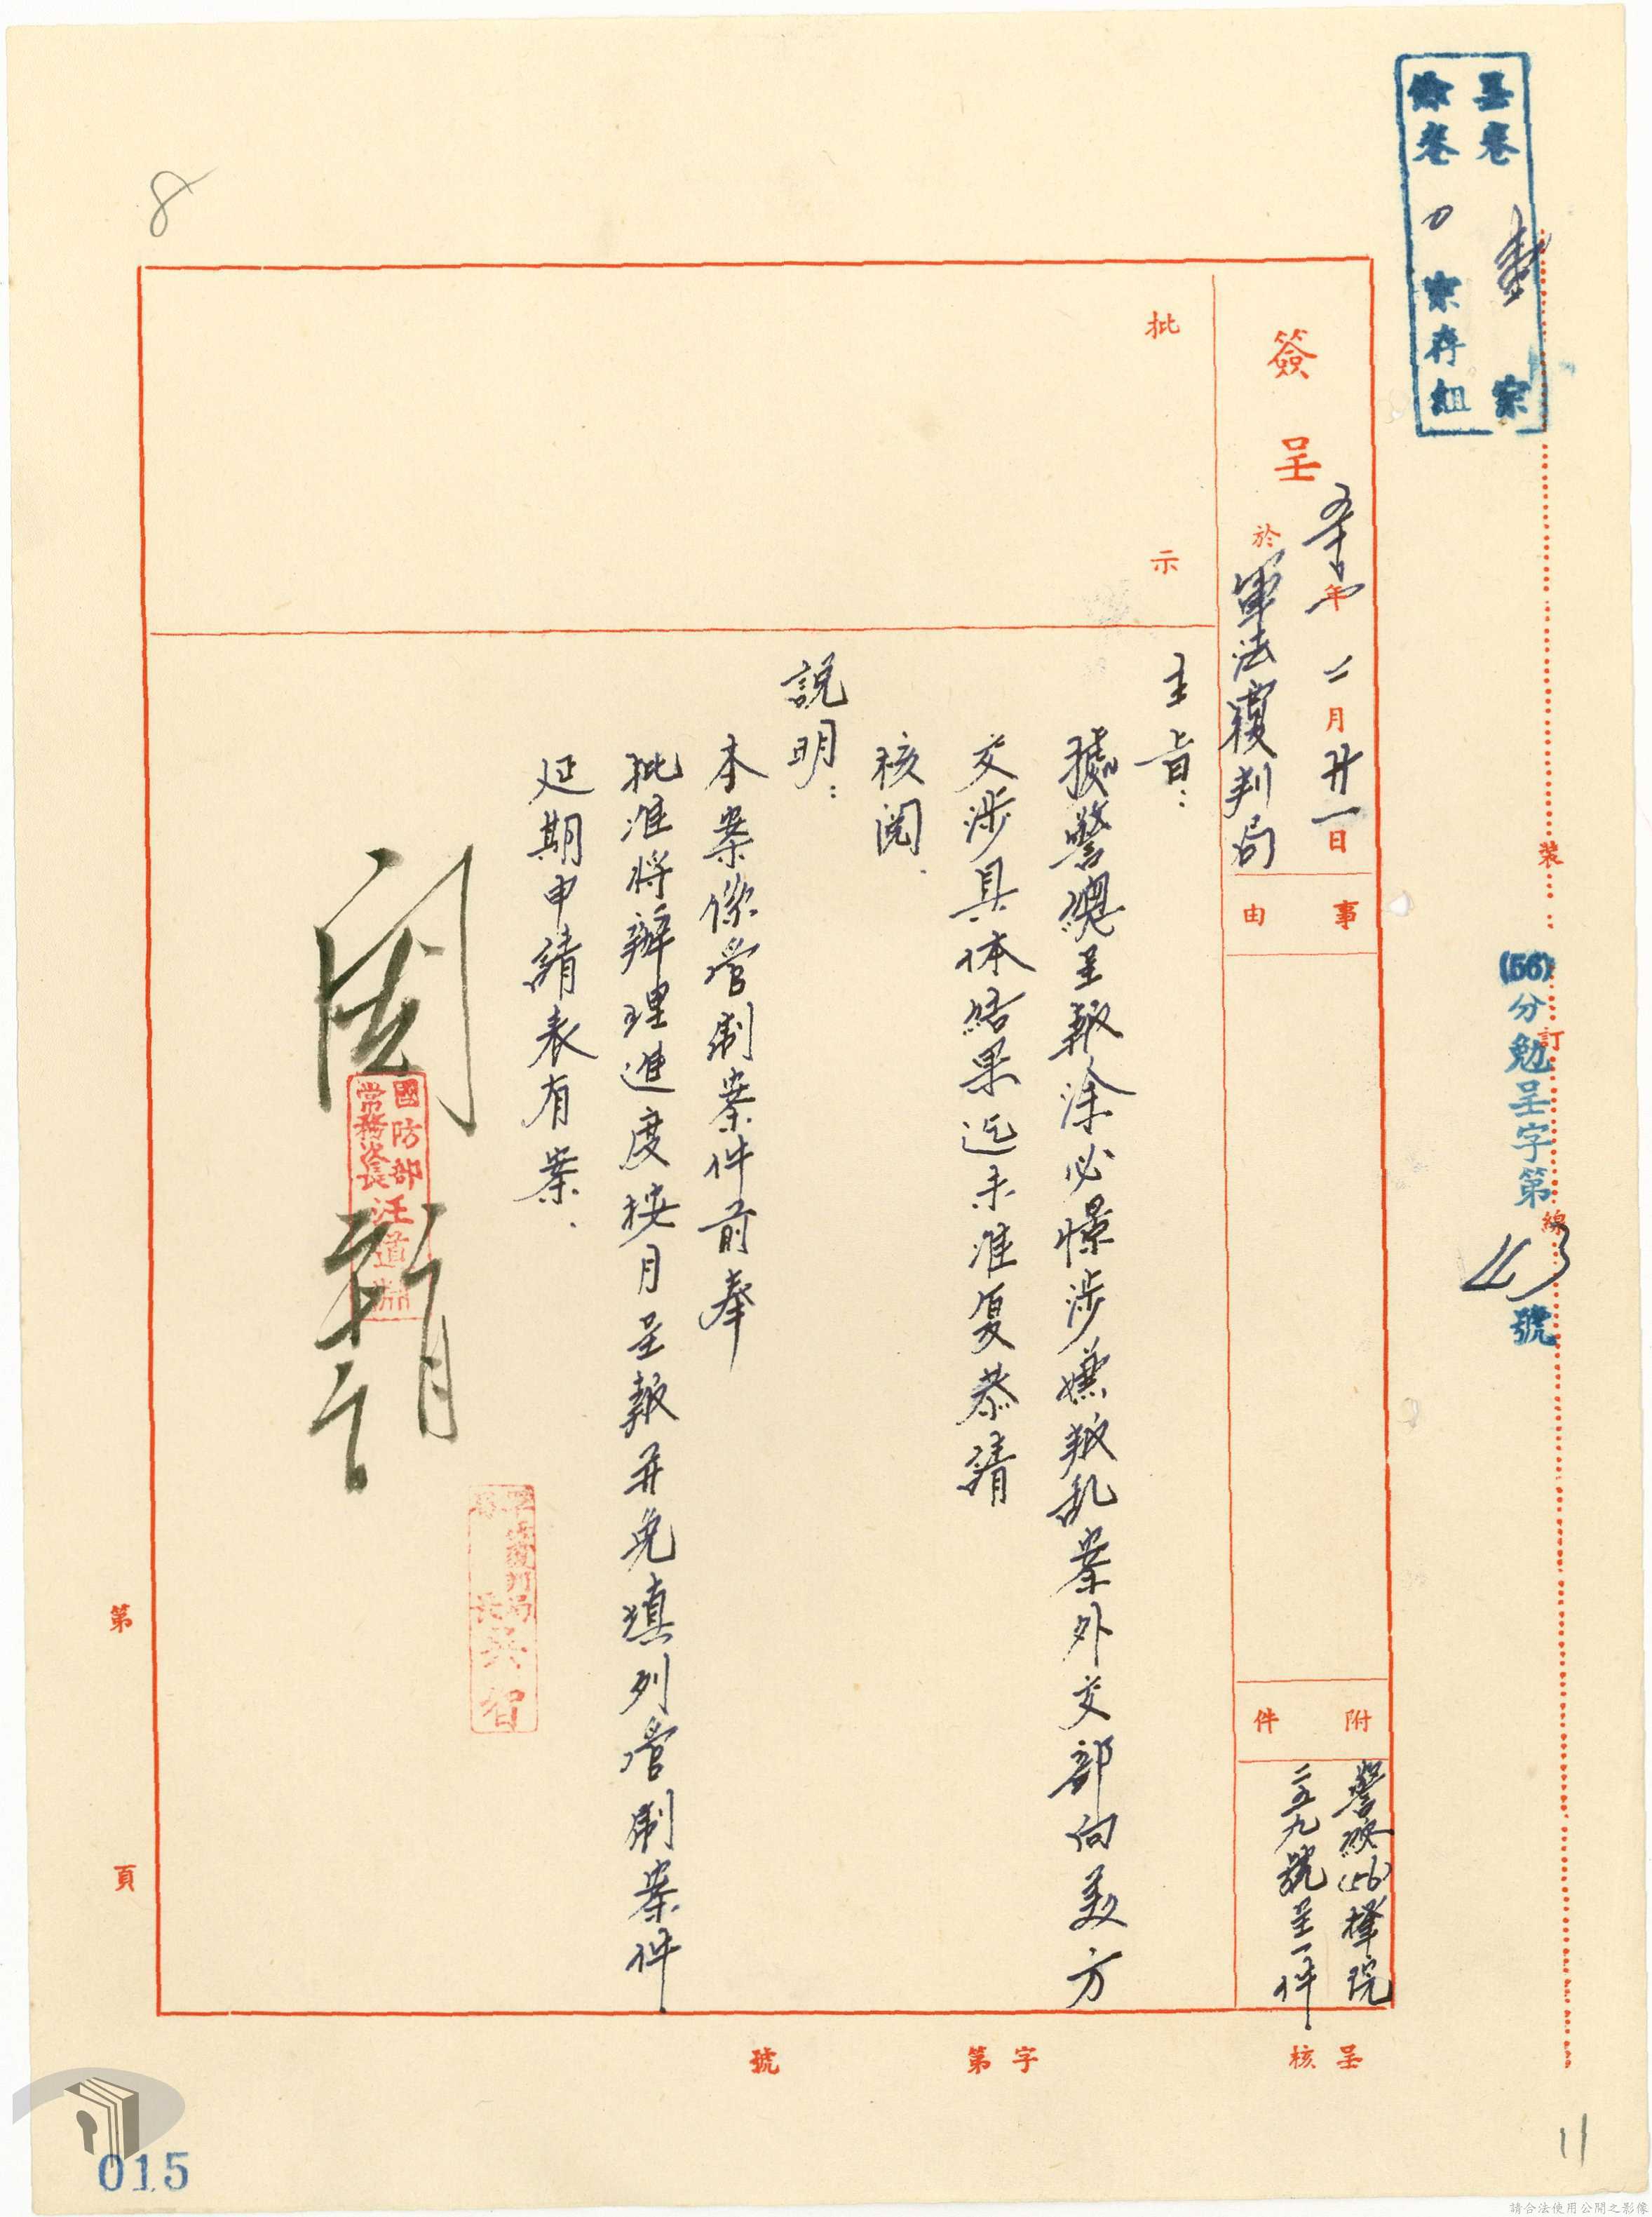 呈卷 宗
餘卷 宗存組
裝
訂
線
(56)分勉呈字第43號
簽呈
五六年二月廿一日
於軍法覆判局
事由
附件
警檢(56)
二五九號呈一件
批示
主旨：
據警總呈報涂必憬涉嫌叛乱案外交部向美方
交涉具体結果迄未准复恭請
核閱.
說明：
本案係管制案件前奉
批准將辦理進度按月呈報并免填列管制案件
延期申請表有案.
軍法覆判局
國防部
常務次長汪道淵
閱
8
第
頁
呈核
字第
號
11
015
請合法使用公開之影像